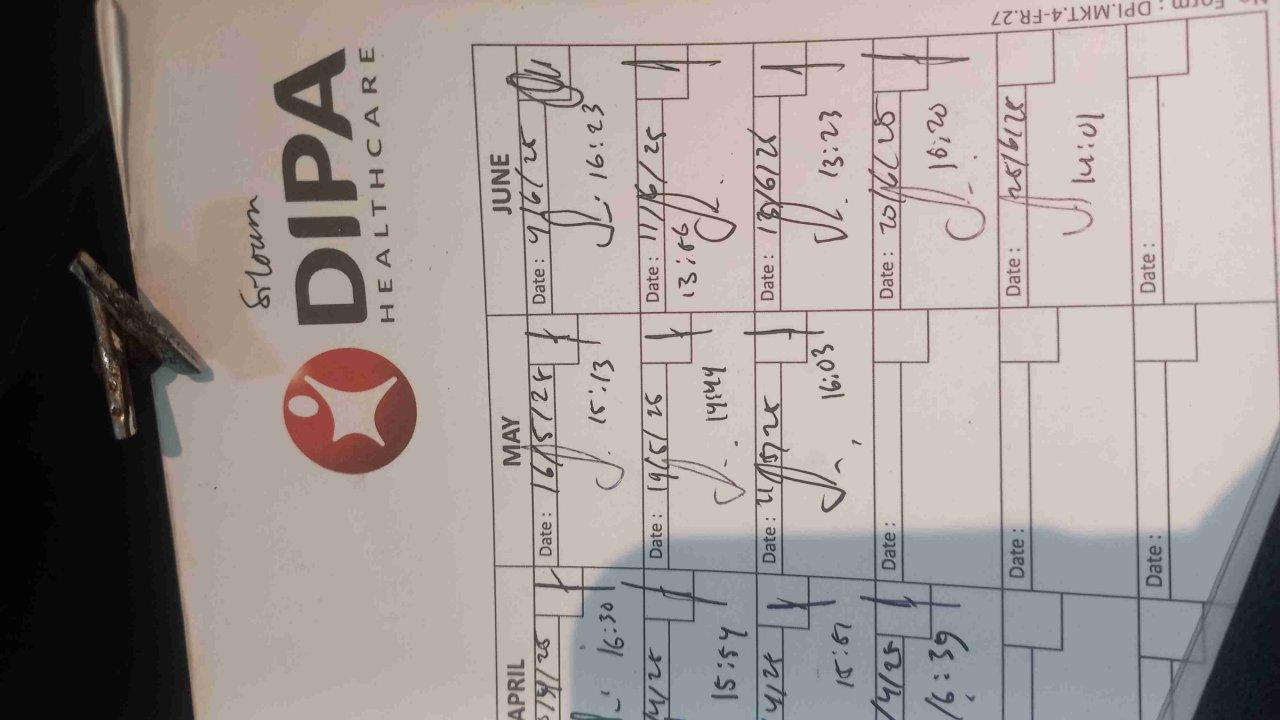 No. Form : DPI.MKT.4-FR.27
DIPA
HEALTHCARE
APRIL
MAY
JUNE
/4/25
16:30
Date : 16/5/25
15:13
Date : 9/6/25
16:23
/4/25
15:54
Date : 19/5/25
14:44
Date : 11/6/25
13:56
/4/25
15:51
Date : 21/5/25
16:03
Date : 13/6/25
13:23
/4/25
16:39
Date : 20/6/25
16:20
Date :
Date : 25/6/25
14:01
Date :
Date :